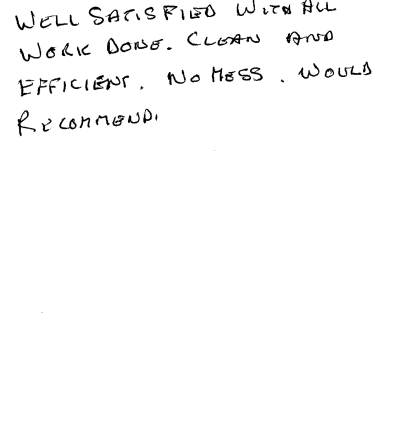 WELL SATISFIED WITH ALL
WORK DONE. CLEAN AND
EFFICIENT. NO MESS. WOULD
RECOMMEND.